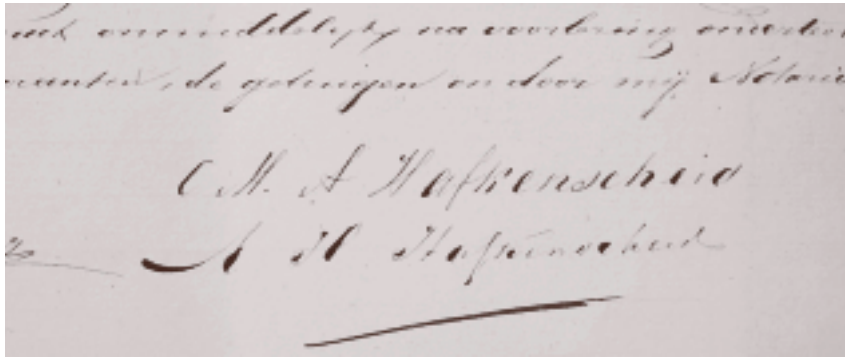 onmiddelijk na voorlezing
de getuigen en door mij Notaris
C M. A Hafkenscheid
A H Hafkenscheid